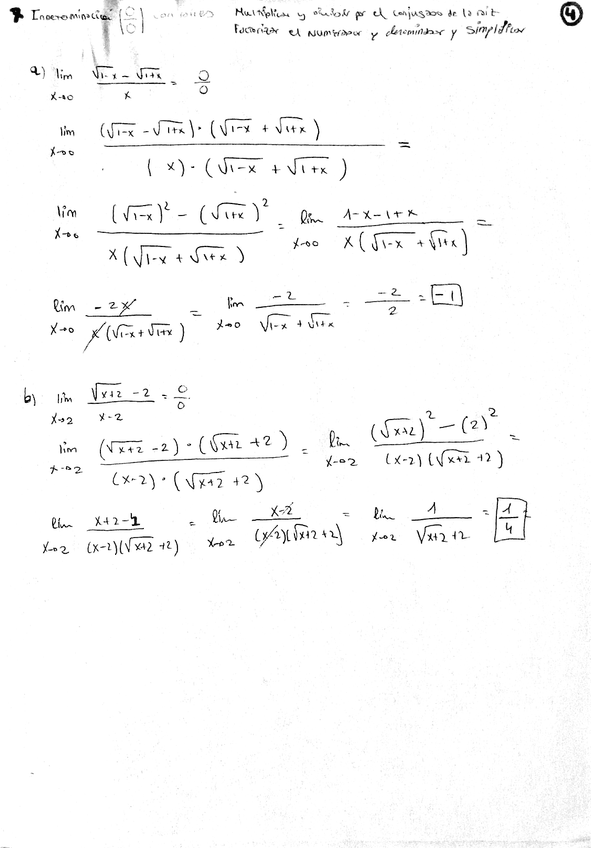 Indeterminación (0/0) con raíces Multiplicar y dividir por el conjugado de la raíz 4
Factorizar el numerador y denominador y simplificar
a) lim x→0 (√1-x - √1+x)/x = 0/0
lim x→0 ((√1-x - √1+x) · (√1-x + √1+x))/((x) · (√1-x + √1+x)) =
lim x→0 ((√1-x)² - (√1+x)²)/(x(√1-x + √1+x)) = lim x→0 (1-x-1+x)/(x(√1-x + √1+x)) =
lim x→0 (-2x)/(x(√1-x + √1+x)) = lim x→0 (-2)/(√1-x + √1+x) = -2/2 = -1
b) lim x→2 (√x+2 - 2)/(x-2) = 0/0
lim x→2 ((√x+2 - 2) · (√x+2 + 2))/((x-2) · (√x+2 + 2)) = lim x→2 ((√x+2)² - (2)²)/((x-2)(√x+2 + 2)) =
lim x→2 (x+2-4)/((x-2)(√x+2 + 2)) = lim x→2 (x-2)/((x-2)(√x+2 + 2)) = lim x→2 1/(√x+2 + 2) = 1/4